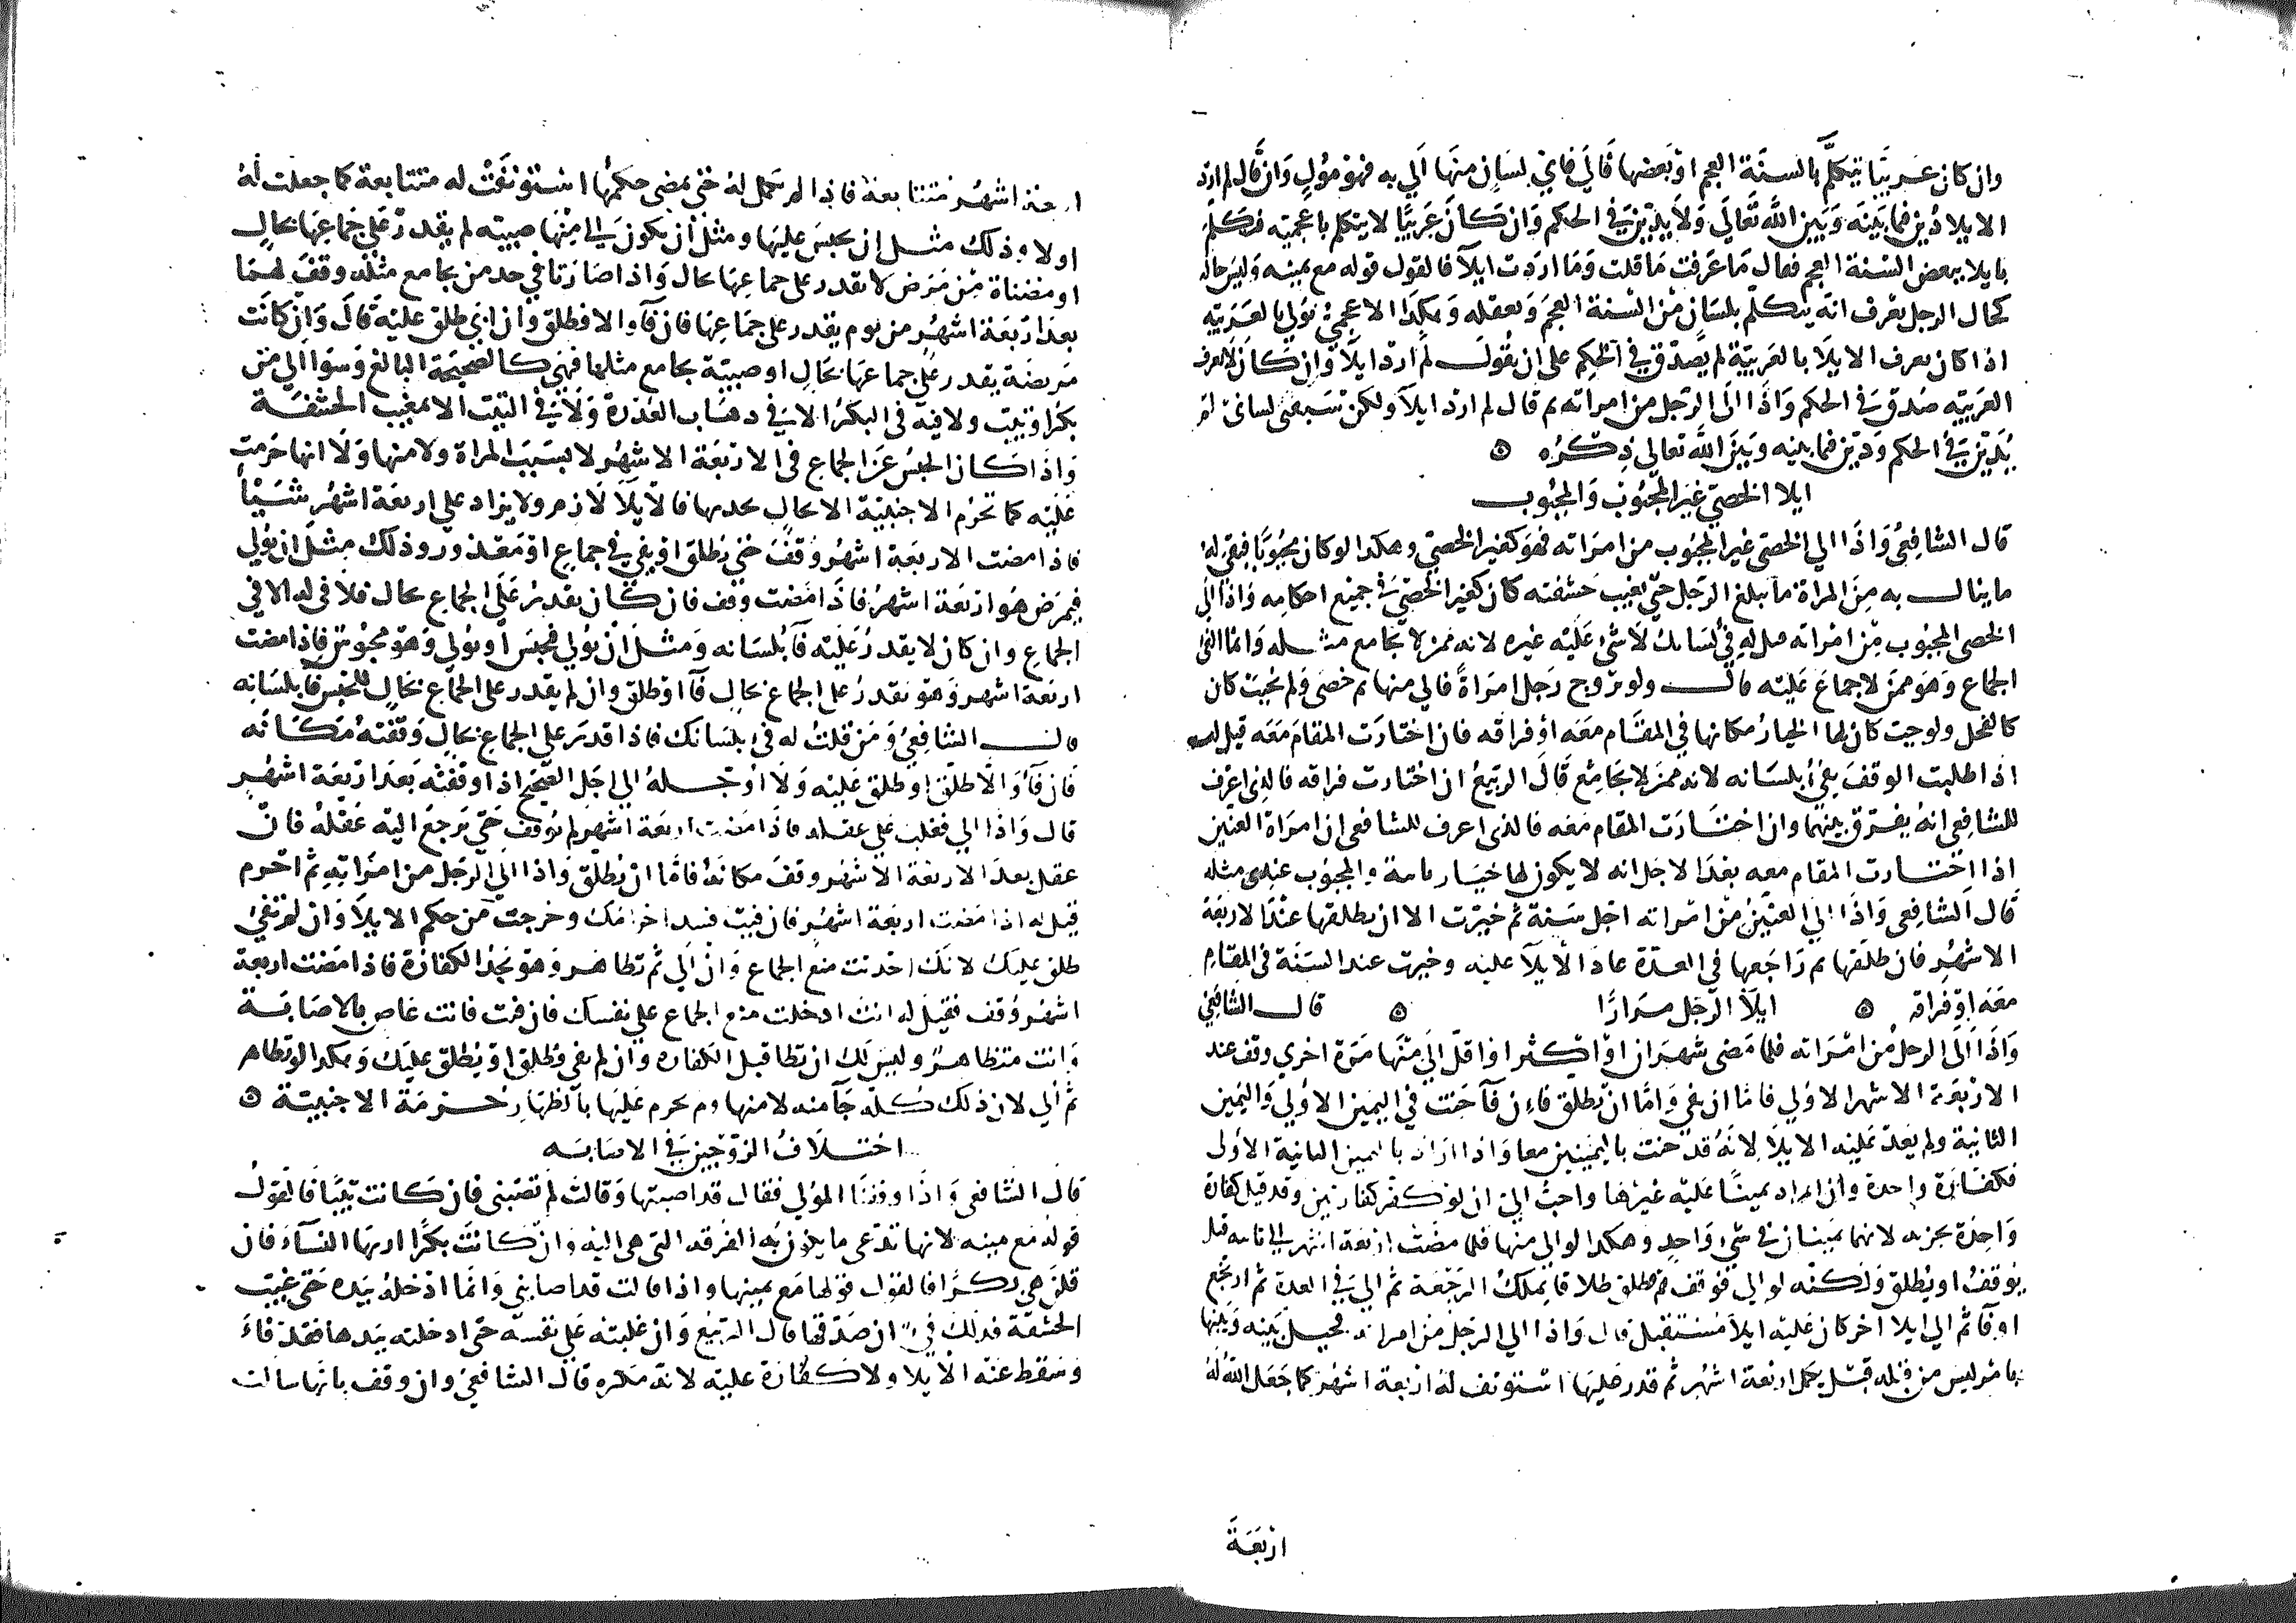 وان كان عربيا يتكلم بالسنة العجم او بعضها فآلى فاي لسان منها آلى به فهو مولٍ وان قال لم ارد
الايلا دين فيما بينه وبين الله تعالى ولا يدين في الحكم وان كان عربيا لا يتكلم باعجميه فتكلم
بايلا ببعض السنة العجم فقال ما عرفت ما قلت وما اردت ايلآ فالقول قوله مع يمينه وليس حاله
كحال الرجل يعرف انه يتكلم بلسان من السنة العجم ويعقله وهكذا الاعجمي يولي بالعربيه
اذا كان يعرف الايلا بالعربية لم يصدق في الحكم على ان يقول لم ارد ايلآ وان كان لا يعرف
العربيه صدق في الحكم واذا آلى الرجل من امراته ثم قال لم ارد ايلآ ولكن سبقني لساني لم
يدين في الحكم ودين فيما بينه وبين الله تعالى ذكره ⊙
ايلا الخصي غير المجبوب والمجبوب
قال الشافعي واذا الى الخصي غير المجبوب من امراته فهو كغير الخصي وهكذا لو كان مجبوبا فبقي له
ما ينال به من المراة ما يبلغ الرجل حتى تغيب حشفته كان كغير الخصي في جميع احكامه واذا الى
الخصي المجبوب من امراته قيل له فئ بلسانك لا شئ عليه غيره لانه ممن لا يجامع مثله وانما الفئ
الجماع وهو ممن لا جماع عليه قال ولو تزوج رجل امراة فالى منها ثم خصي ولم يجب كان
كالفحل ولو جب كان لها الخيار مكانها في المقام معه او فراقه فان اختارت المقام معه قيل له
اذا طلبت الوقف يفئ بلسانه لانه ممن لا يجامع قال الربيع ان اختارت فراقه فالذي اعرف
للشافعي انه يفرق بينهما وان اختارت المقام معه فالذي اعرف للشافعي ان امراة العنين
اذا اختارت المقام معه بعد الاجل انه لا يكون لها خيار ثانية والمجبوب عندي مثله
قال الشافعي واذا الى العنين من امراته اجل سنة ثم خيرت الا ان يطلقها عند الاربعة
الاشهر فان طلقها ثم راجعها في العدة عاد الايلآ عليه وخيرت عند السنة في المقام
معه او فراقه ⊙ ايلآ الرجل مرارا ⊙ قال الشافعي
واذا آلى الرجل من امراته فلما مضى شهران او اكثر او اقل الى منها مرة اخرى وقف عند
الاربعة الاشهر الاولى فاما ان يفي واما ان يطلق فان فآ حنث في اليمين الاولى واليمين
الثانية ولم يعد عليه الايلآ لانه قد حنث باليمينين معا واذا اراد باليمين الثانية الاولى
فكفارة واحدة وان اراد يمينا عليه غيرها واحب الي ان لو كفر كفارتين وقد قيل كفارة
واحدة تجزيه لانهما يمينان في شيء واحد وهكذا لو الى منها فلما مضت اربعة اشهر الى ثانيه قبل
يوقف او يطلق ولكنه لو الى فوقف فطلق طلاقا يملك الرجعة ثم الى في العدة ثم ارتجع
او فآ ثم الى ايلا اخر كان عليه ايلآ مستقبل قال واذا الى الرجل من امراته فحيل بينه وبينها
بامر ليس من قبله قبل يكمل اربعة اشهر ثم قدر عليها استؤنف له اربعة اشهر كما جعل الله له
اربعة
اربعة اشهر متتابعة فاذا لم تكمل له حتى يمضي حكمها استؤنفت له متتابعة كما جعلت له
اولا وذلك مثل ان يحبس عليها ومثل ان يكون الى منها صبيه لم يقدر على جماعها بحال
او مضناة من مرض لا يقدر على جماعها بحال واذا صارتا في حد من يجامع مثله وقف لهما
بعد اربعة اشهر من يوم يقدر على جماعها فان فآ والا فطلق وان ابى طلق عليه قال وان كانت
مريضة يقدر على جماعها بحال او صبية يجامع مثلها فهي كالصحيحة البالغ وسوا الى من
بكر او ثيب ولا فيه في البكر الا في ذهاب العذرة ولا في الثيب الا بمغيب الحشفة
واذا كان الحبس عن الجماع في الاربعة الاشهر لا بسبب المراة ولا منها ولا انها حرمت
عليه كما تحرم الاجنبية الا بحال يحدثها فالايلآ لازم ولا يزاد على اربعة اشهر شيئا
فاذا مضت الاربعة اشهر وقف حتى يطلق او يفي في جماع او معذور وذلك مثل ان يولي
فيمرض هو اربعة اشهر فاذا مضت وقف فان كان يقدر على الجماع بحال فلا في له الا في
الجماع وان كان لا يقدر عليه فآ بلسانه ومثل ان يولي فيحبس او يولي وهو محبوس فاذا مضت
اربعة اشهر وهو يقدر على الجماع بحال فآ او طلق وان لم يقدر على الجماع بحال للحبس فآ بلسانه
قال الشافعي ومن قلت له فئ بلسانك فاذا قدر على الجماع بحال وقفته مكانه
فان فآ والا طلق او طلق عليه ولا اؤجله الى اجل الصحيح اذا وقفته بعد اربعة اشهر
قال واذا الى فغلب على عقله فاذا مضت اربعة اشهر لم يوقف حتى يرجع اليه عقله فان
عقل بعد الاربعة الاشهر وقف مكانه فاما ان يطلق واذا الى الرجل من امراته ثم احرم
قيل له اذا مضت اربعة اشهر فان فيت فسد احرامك وخرجت من حكم الايلآ وان لم تفئ
طلق عليك لانك احدثت منع الجماع وان آلى ثم تظاهر وهو يجد الكفارة فاذا مضت اربعة
اشهر وقف فقيل له انت ادخلت منع الجماع على نفسك فان فئت فانت عاص بالاصابة
وانت متظاهر وليس لك ان تطا قبل الكفاره وان لم تفي فطلق او يطلق عليك وهكذا لو تظاهر
ثم آلى لان ذلك كله جآ منه لا منها ولم يحرم عليها بالظهار حرمة الاجنبية ⊙
اختلاف الزوجين في الاصابه
قال الشافعي واذا وقفنا المولي فقال قد اصبتها وقالت لم تصبني فان كانت ثيبا فالقول
قوله مع يمينه لانها تدعي ما يكون به الفرقه التي هي اليه وان كانت بكرا اريها النسآء فان
قلن هي بكر فالقول قولها مع يمينها واذا قالت قد اصابني وانما ادخله بيده حتى غيب
الحشفة فذلك فئ ان صدقها قال الربيع وان غلبته على نفسه حتى ادخلته بيدها فقد فاء
وسقط عنه الايلا ولا كفارة عليه لانه مكره قال الشافعي وان وقف بانها سالت